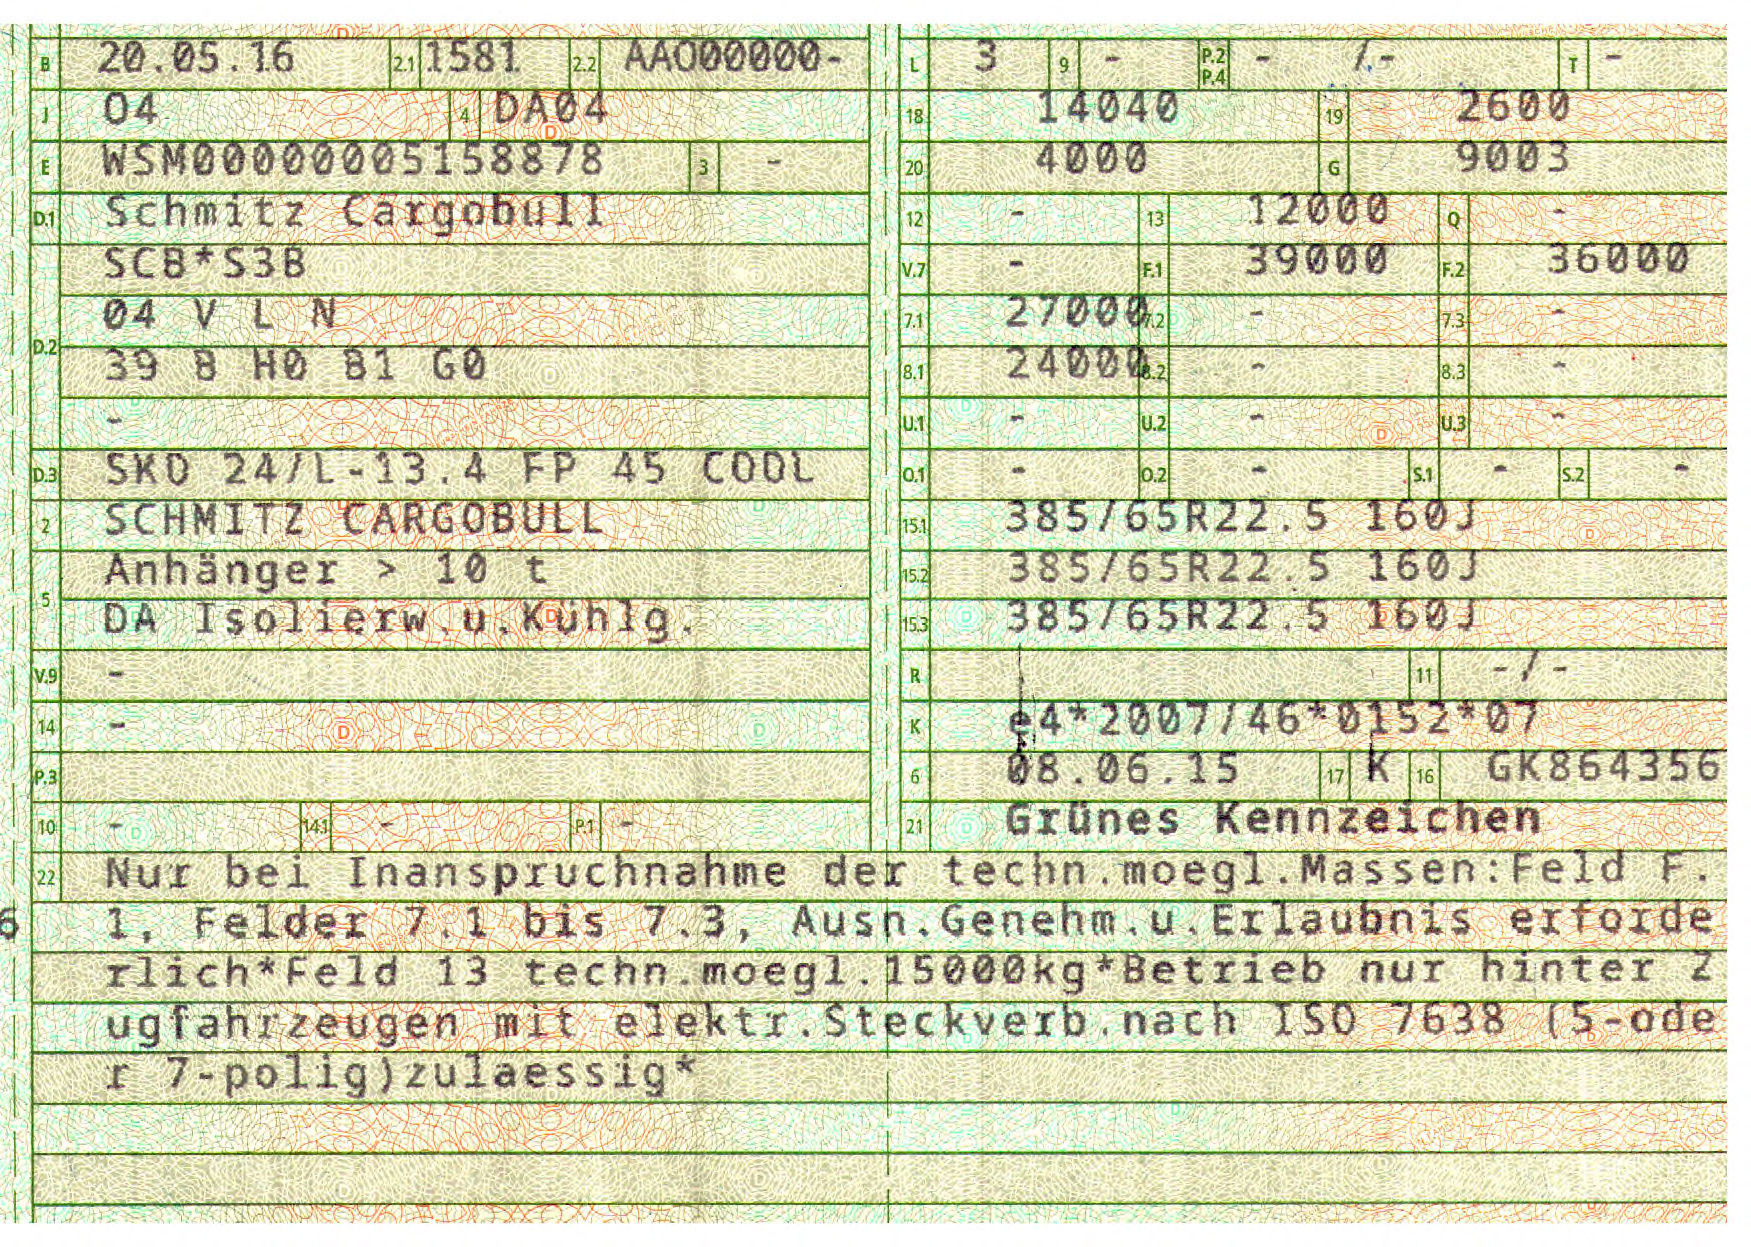 B 20.05.16 2.1 1581 2.2 AAO00000-
J 04 4 DA04
E WSM00000005158878 3 -
D.1 Schmitz Cargobull
SCB*S3B
04 V L N
D.2
39 B H0 B1 G0
-
D.3 SKO 24/L-13.4 FP 45 COOL
2 SCHMITZ CARGOBULL
Anhänger > 10 t
5
DA Isolierw.u.Kühlg.
V.9 -
14 -
P.3
10 - 14.1 - P.1 -
L 3 9 - P.2 P.4 - /.- T -
18 14040 19 2600
20 4000 G 9003
12 - 13 12000 Q -
V.7 - F.1 39000 F.2 36000
7.1 27000 7.2 - 7.3 -
8.1 24000 8.2 - 8.3 -
U.1 - U.2 - U.3 -
O.1 - O.2 - S.1 - S.2 -
15.1 385/65R22.5 160J
15.2 385/65R22.5 160J
15.3 385/65R22.5 160J
R 11 -/-
K e4*2007/46*0152*07
6 08.06.15 17 K 16 GK864356
21 Grünes Kennzeichen
22 Nur bei Inanspruchnahme der techn.moegl.Massen:Feld F.
6 1, Felder 7.1 bis 7.3, Ausn.Genehm.u.Erlaubnis erforde
rlich*Feld 13 techn.moegl.15000kg*Betrieb nur hinter Z
ugfahrzeugen mit elektr.Steckverb.nach ISO 7638 (5-ode
r 7-polig)zulaessig*